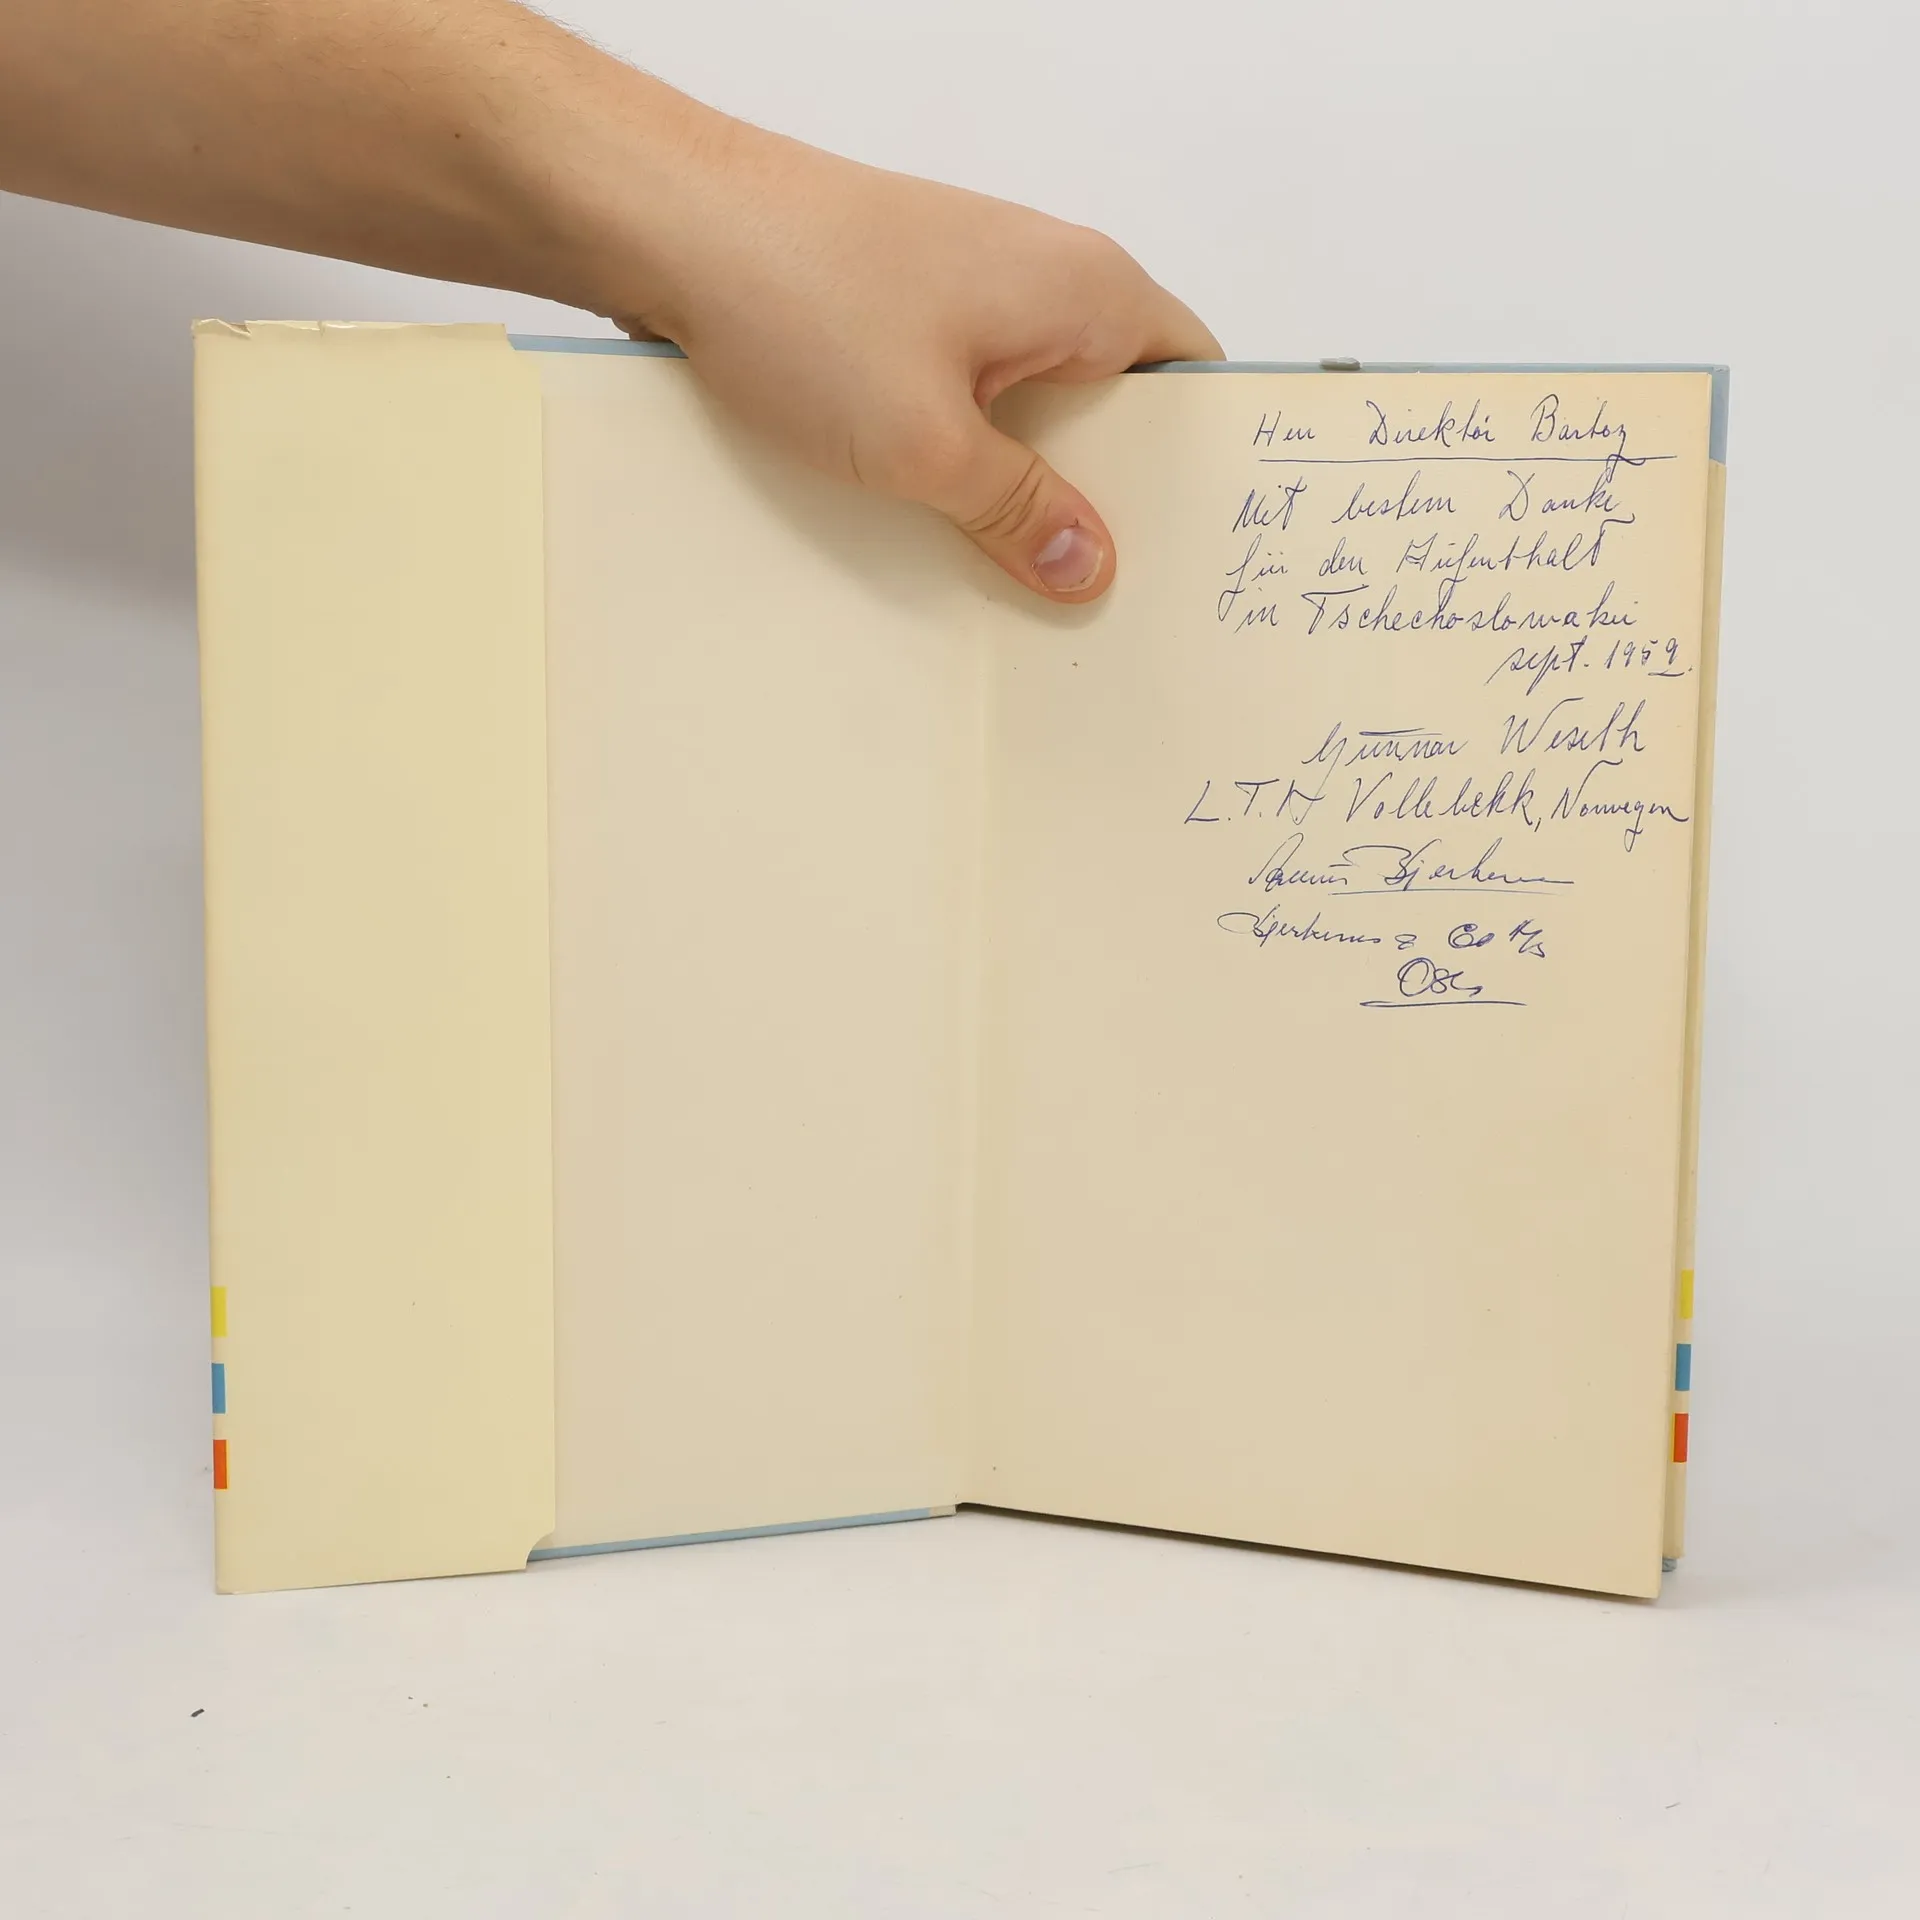 Herr Direktór Bartoz
Mit bestem Danke
für den Aufenthalt
in Tschechoslowakei
sept. 1959.
Gunnar Weseth
L.T.I. Vollebekk, Norwegen
Bjerkenes
Bjerkenes & Co A/S
Oslo